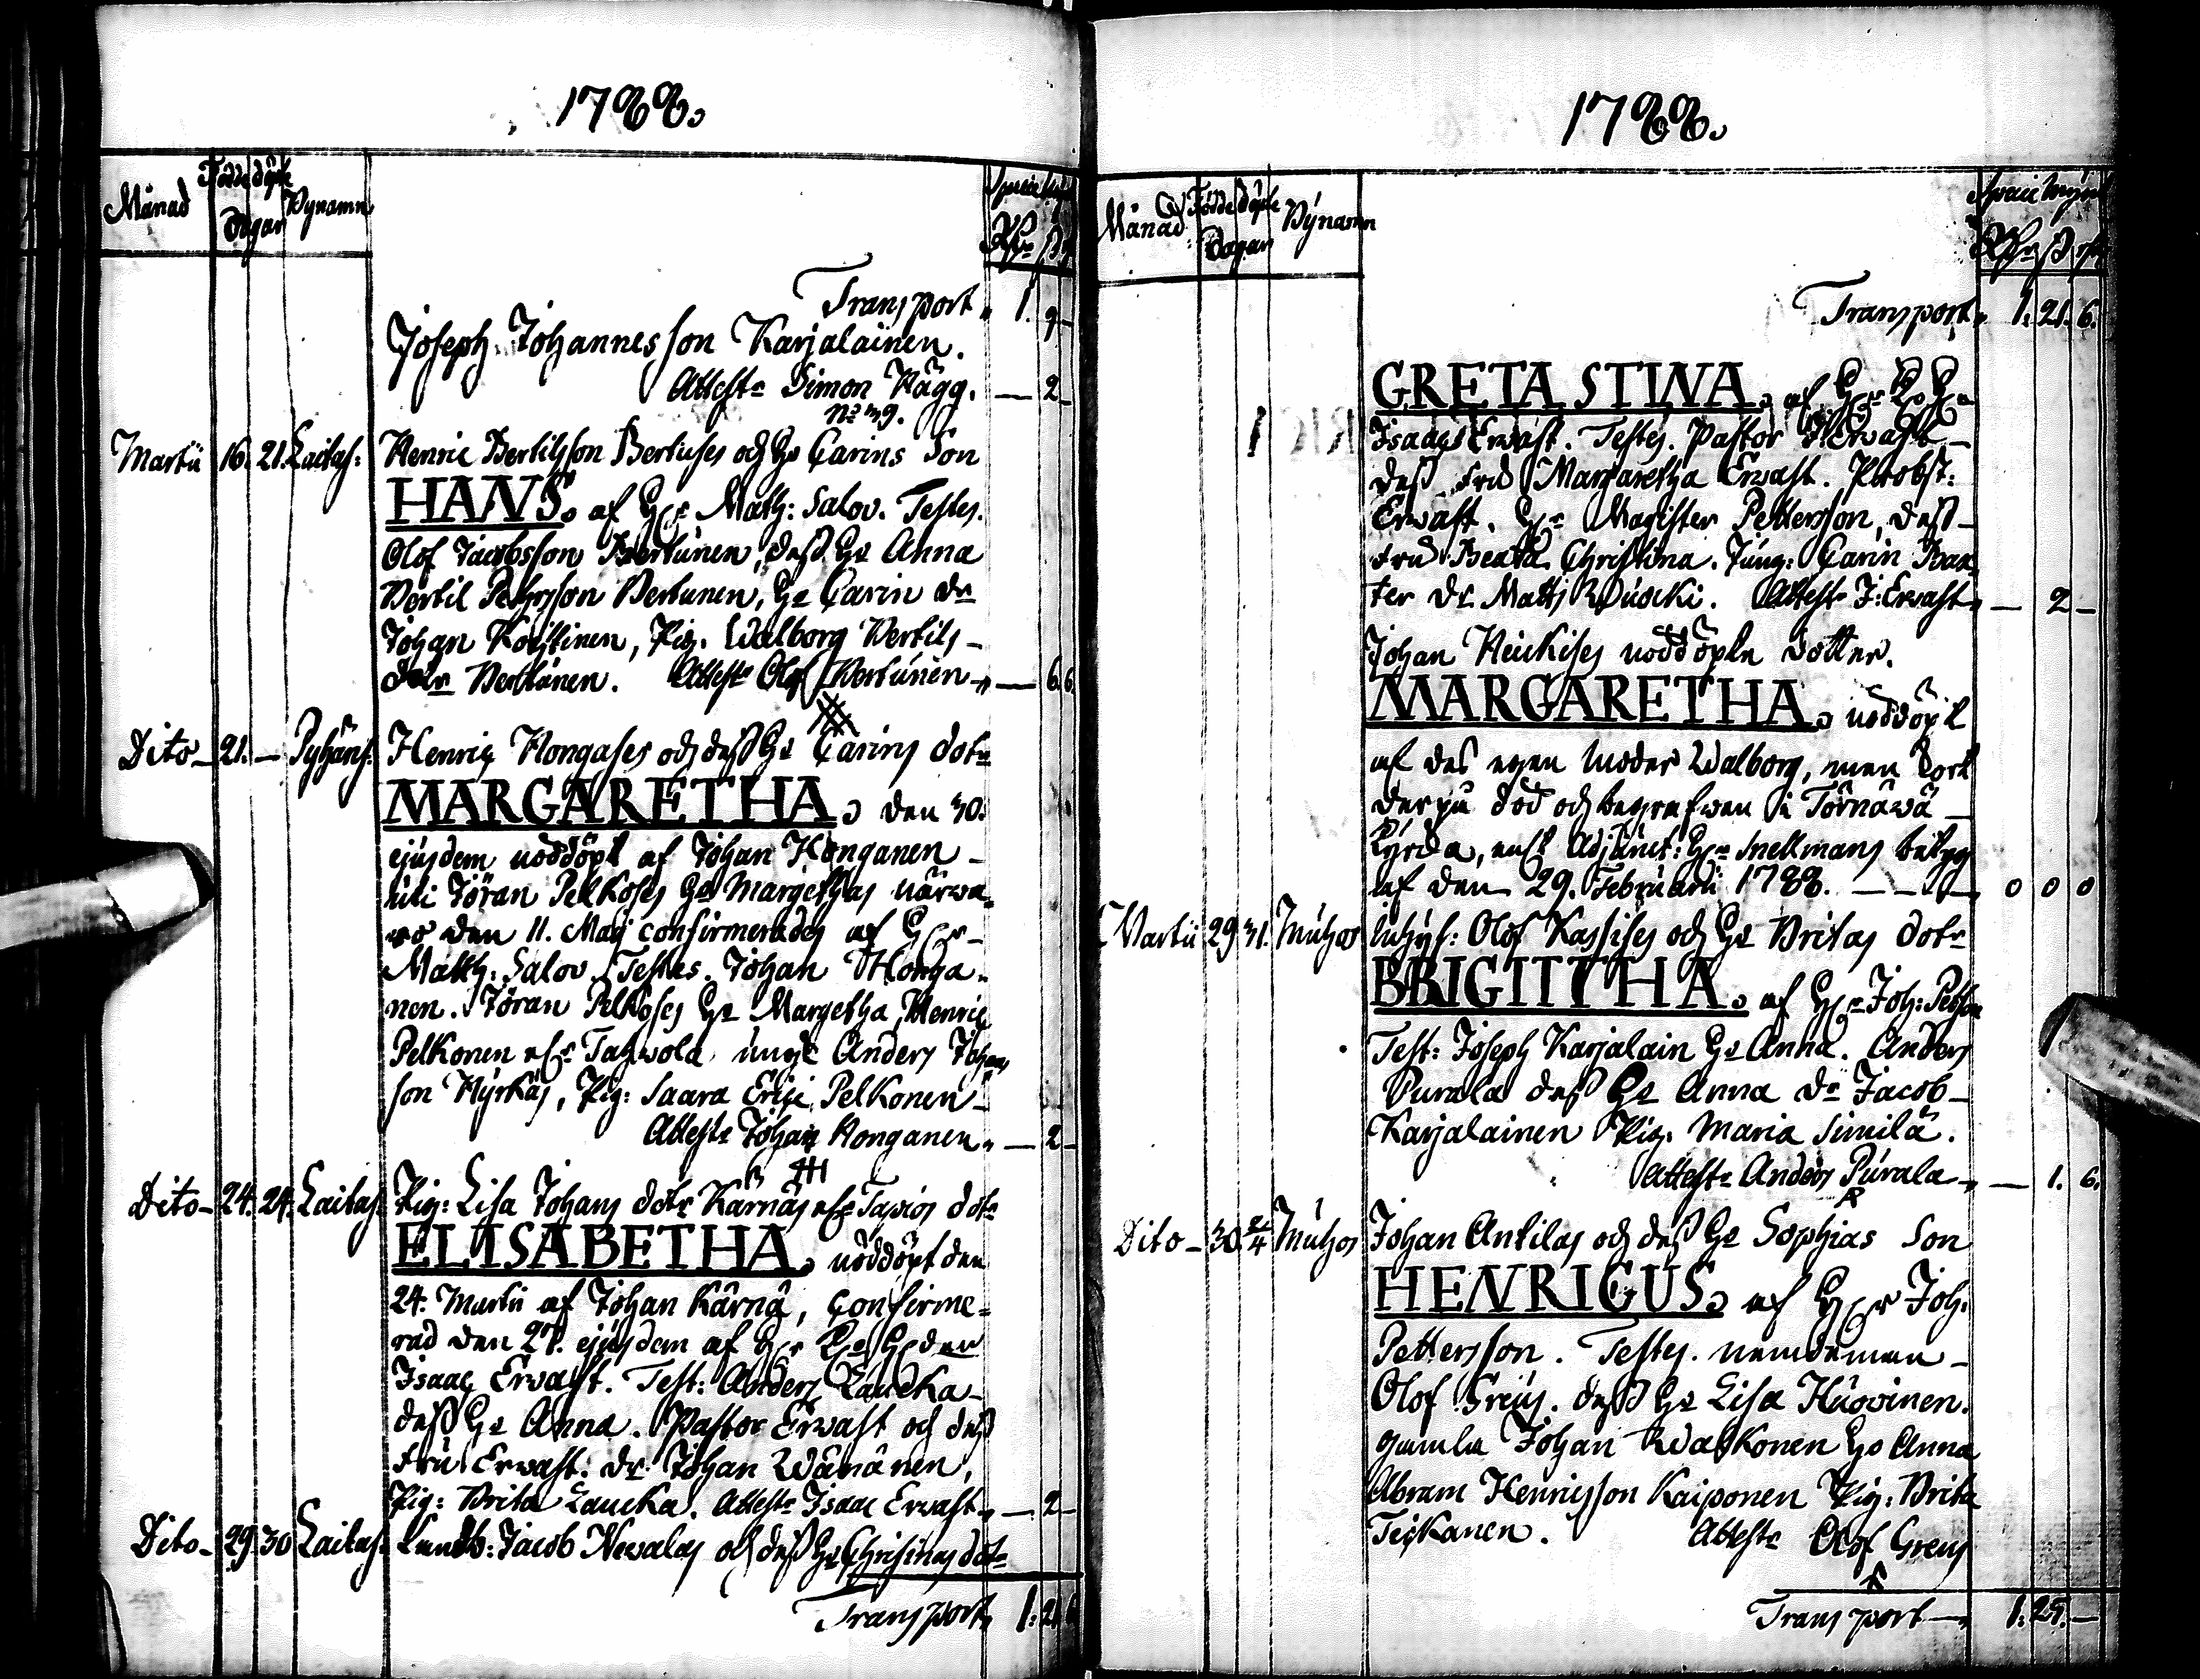 1788.
Månad Födde döpte Bynamn
dagar
Transport 1. 9 -
Joseph Johannesson Karjalainen.
Attest: Simon Hägg. — 2 -
Martii 16. 21. Laitas: Henric Bertilsson Bertuses och Hu Carins Son
HANS. af Hr Math: Salov. Testes.
Olof Jacobsson Bertunen, dess Hu Anna
Bertil Pehrsson Bertunen, Hu Carin Dr
Johan Koistinen, Pig. Walborg Bertils-
dotr Bertunen. Attest Olof Bertunen — 6. 6.
Dito 21. — Pyhäns: Henric Hongases och dess Hu Carins dotr
MARGARETHA. den 30.
ejusdem nöddöpt af Johan Honganen
uti Jöran Pelkoses Hu Margethas närwa-
ro den 11. Maij confirmerades af Hr
Math: Salov. Testes. Johan Honga-
nen. Jöran Pelkoses Hu Margetha, Henric
Pelkonen Tahwola, unge Anders Johans
son Hyrkäs, Pig: Saara Erici Pelkonen
Attest: Johan Honganen — 2 -
Dito 24. 24. Laitas: Pig: Lisa Johans dotr Kärnäs Tapios dotr
ELISABETHA. nöddöpt den
24. Martii af Johan Kärnä, confirme-
rad den 27. ejusdem af Hr
Isaac Erwast. Test: Anders Laucka
dess Hu Anna. Pastor Erwast och dess
Fru Erwast. Dr Johan Wänänen,
Pig: Brita Laucka. Attest: Isaac Erwast — 2 -
Dito 29. 30 Laitas: Landb: Jacob Newalas och dess Hu Chrisinas dotr
Transport 1. 21. 6
1788.
Månad Födde döpte Bynamn
Dagar
Transport 1. 21. 6.
GRETA STINA. af Hr
Isaac Erwast. Testes. Pastor J. Erwast
dess Fru Margaretha Erwast. Probst:
Erwast. Hr Magister Pettersson, dess
Fru Beata Christina. Jung: Carin Bax
ter Dr Matts Ruucki. Attest J: Erwast — 2 -
Johan Heickises nöddöpte dotter.
MARGARETHA. nöddöpt
af des egen moder Walborg, men
död och begrafwen i Törnäwä
Kyrcka, enl Adjunct: Hr Snellmans betyg
af den 29. Februarii 1788. — 0 0 0
Martii 29. 31. Muhos Inhys: Olof Kassises och Hu Britas dotr
BRIGITTHA. af Hr Joh: Pettson
Test: Joseph Karjalain Hu Anna. Anders
Purala dess Hu Anna Dr Jacob
Karjalainen Pig. Maria Similä.
Attest: Anders Purala — 1. 6.
Dito 30. 2/4 Muhos Johan Antilas och dess Hu Sophias Son
HENRICUS. af Hr Joh.
Pettersson. Testes. nemdeman
Olof Greus. dess Hu Lisa Huovinen.
gamla Johan Hu Anna
Abram Henricsson Kaiponen Pig: Brita
Teskanen. Attest: Olof Greus
Transport 1. 25. —